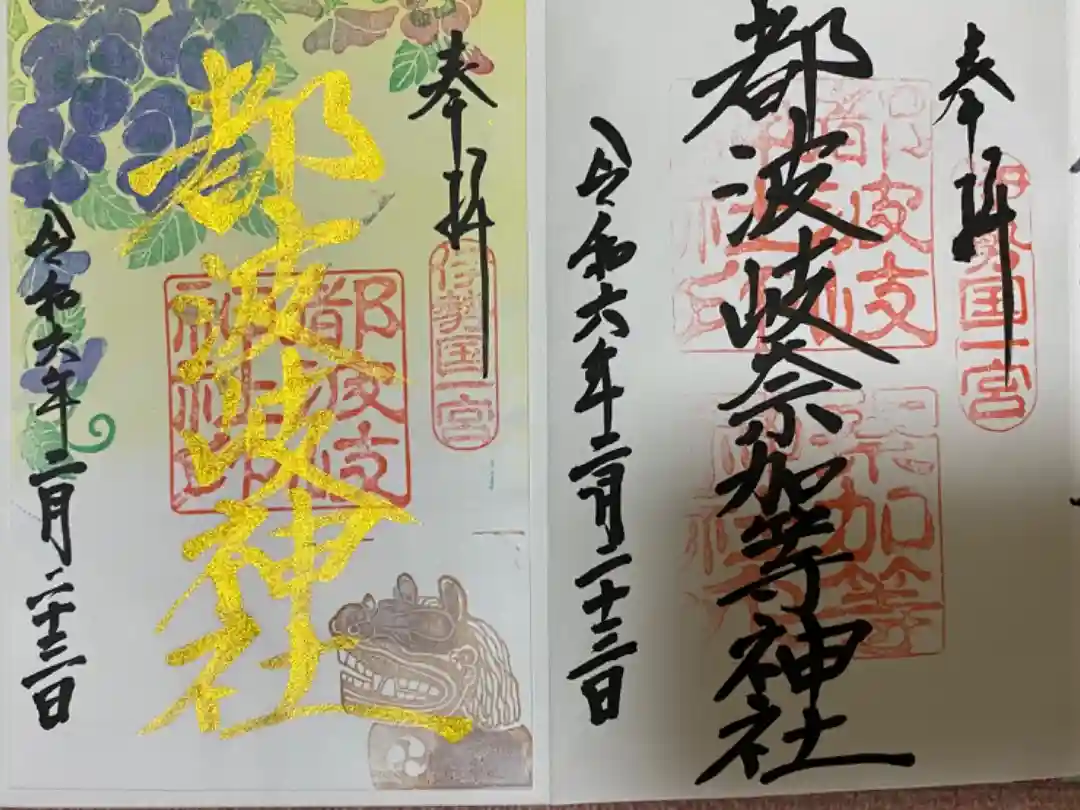 奉拝
伊勢国一宮
都波岐奈加等神社
都波支
神社印
奈加等
令和六年二月二十三日
奉拝
伊勢国一宮
都波岐神社
都波支
神社印
令和六年二月二十三日